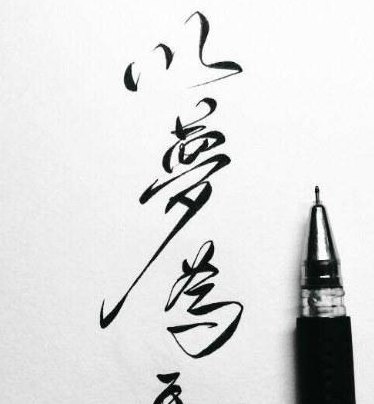 以夢為